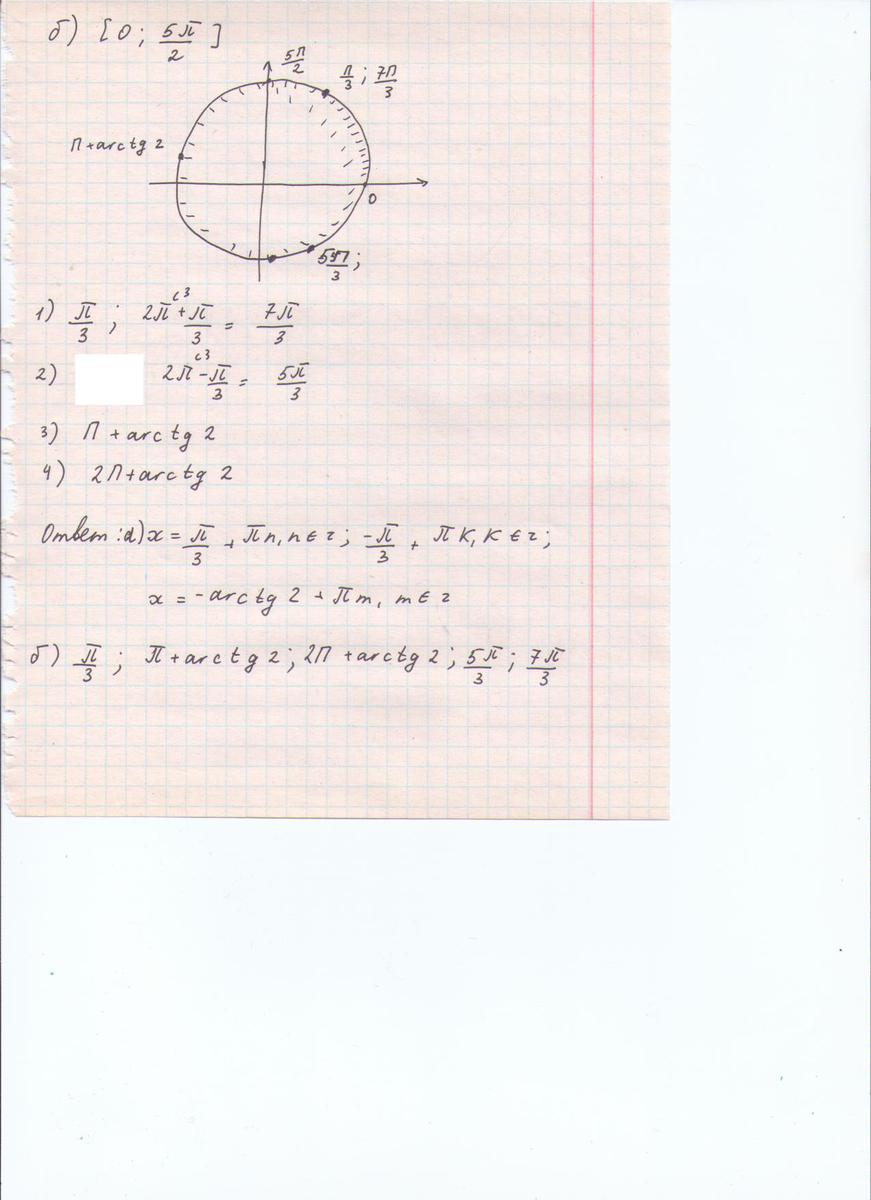 б) [0; 5π/2]
5π/2
π/3; 7π/3
π + arctg 2
0
5π/3;
1) π/3; 2π с3 + π/3 = 7π/3
2) 2π с3 - π/3 = 5π/3
3) π + arctg 2
4) 2π + arctg 2
Ответ: а) x = π/3 + πn, n ∈ z; -π/3 + πk, k ∈ z;
x = -arctg 2 + πm, m ∈ z
б) π/3; π + arctg 2; 2π + arctg 2; 5π/3; 7π/3